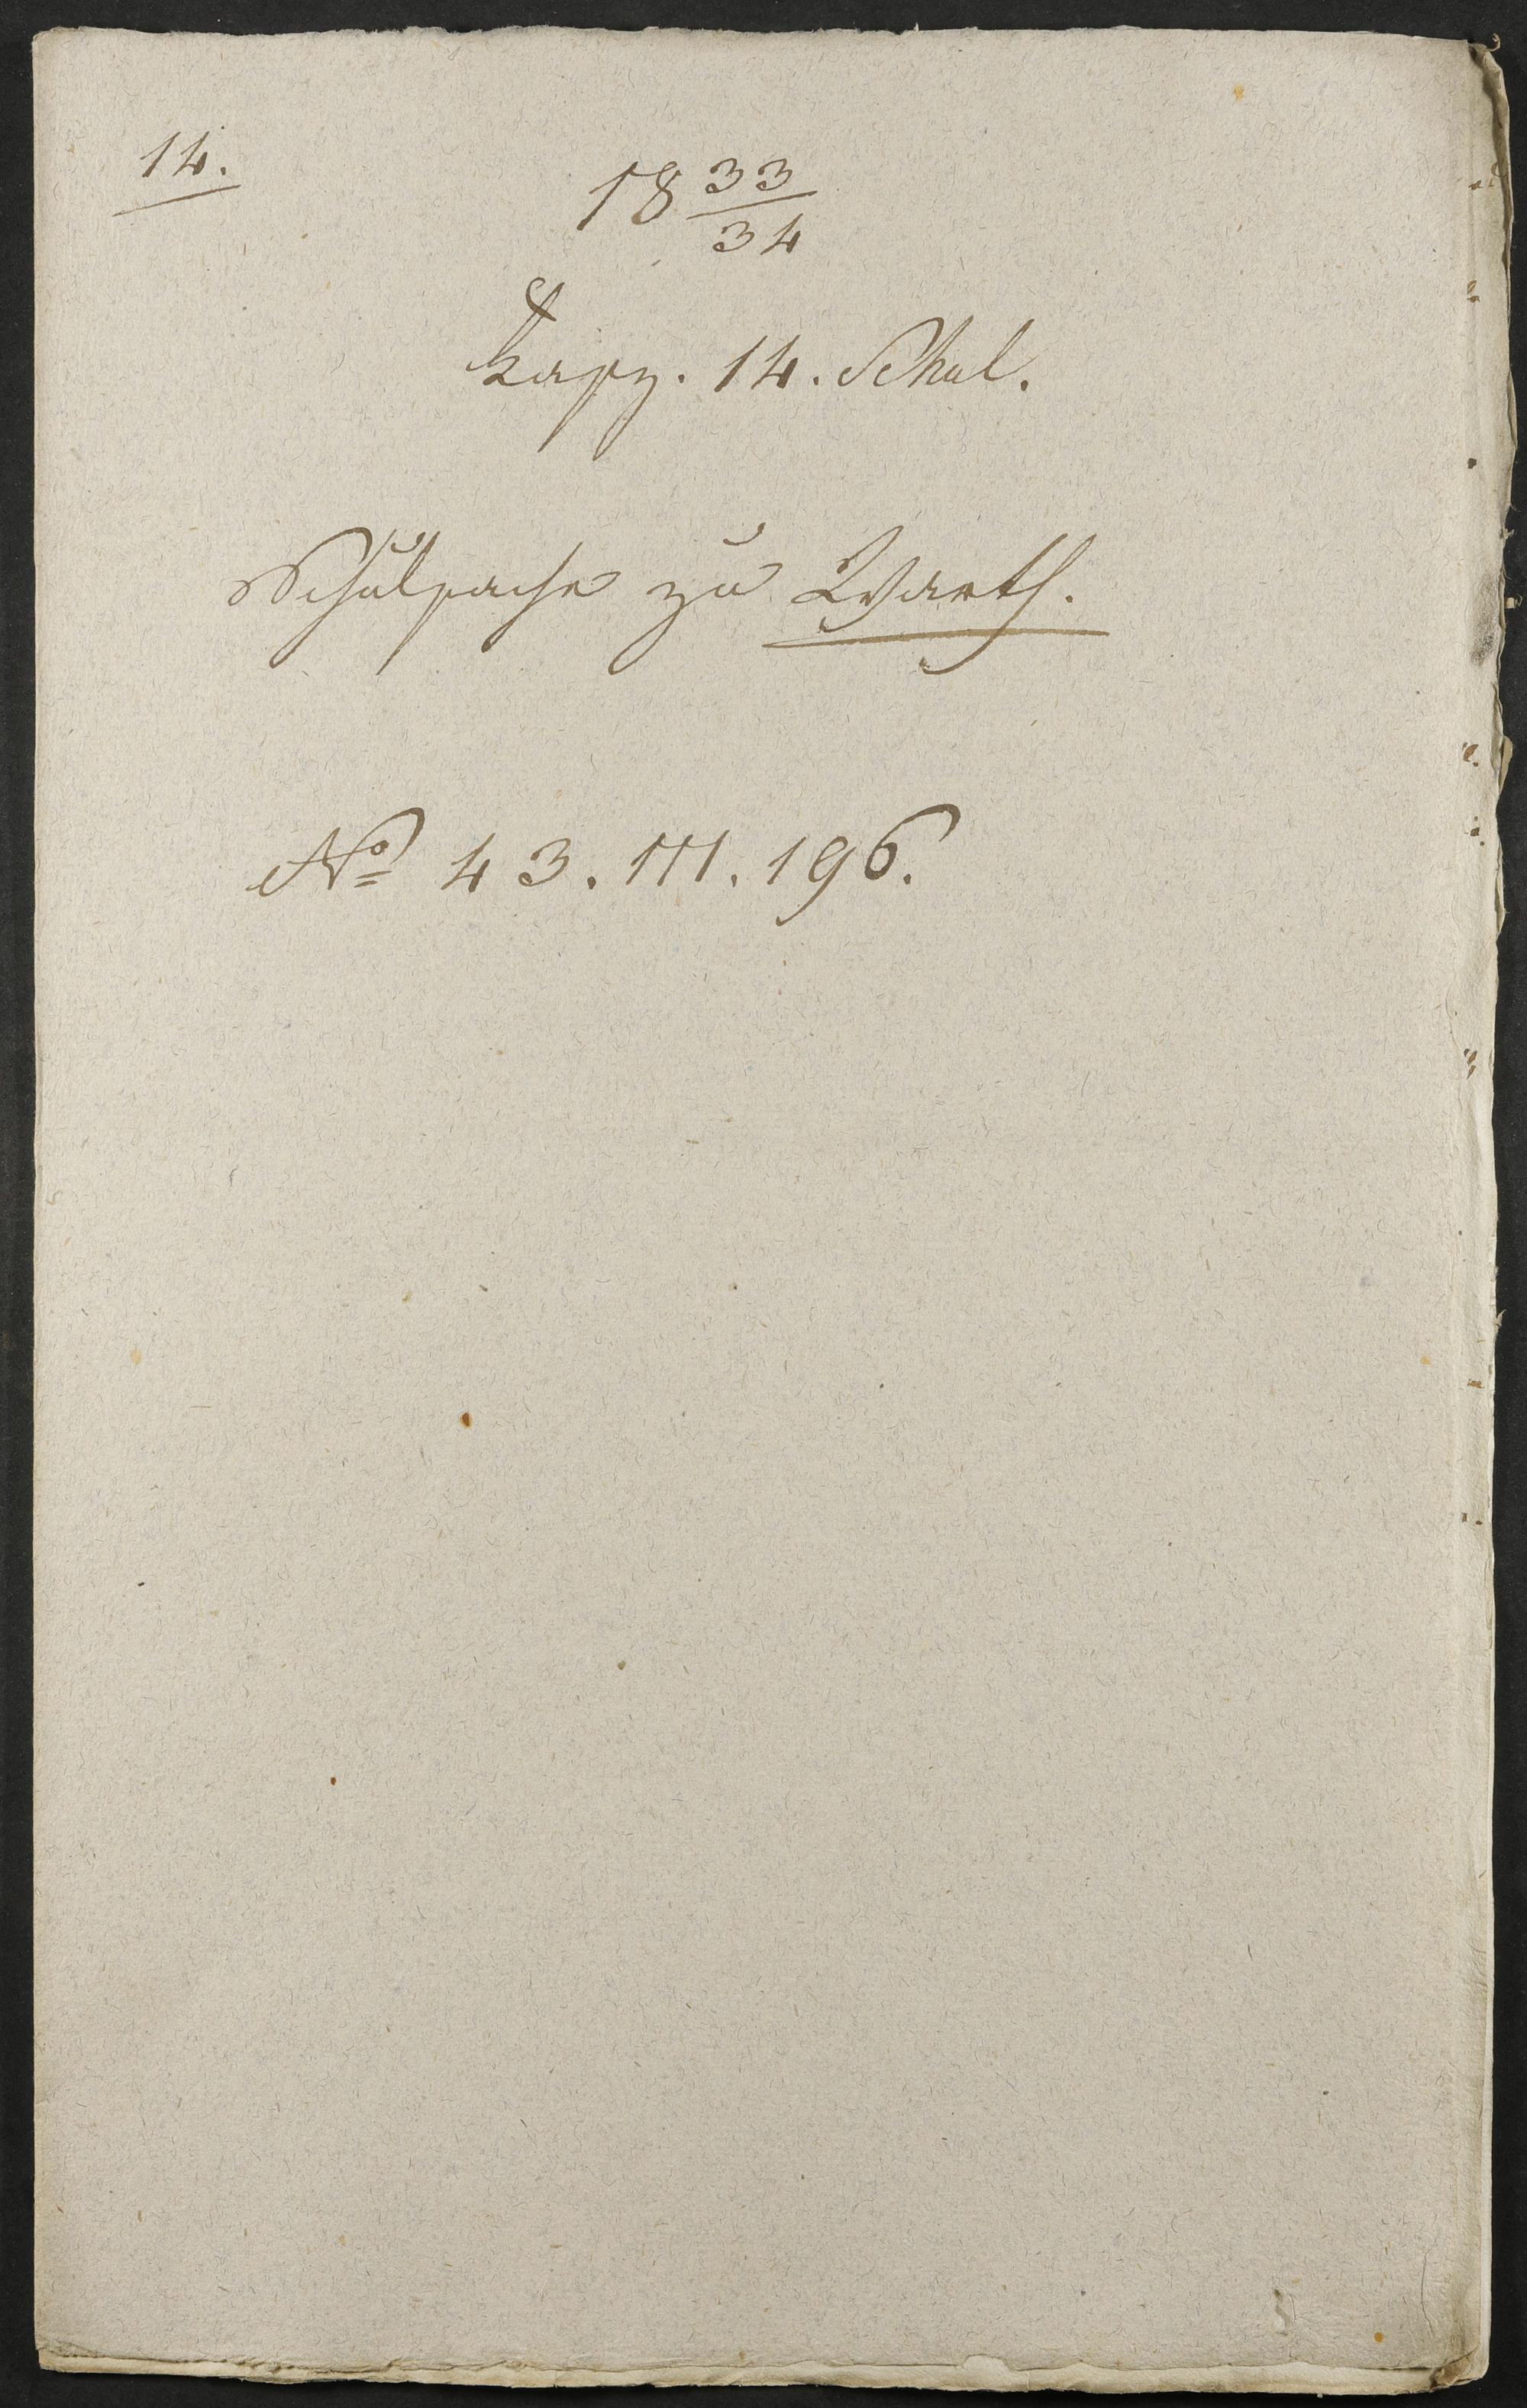 14.
18 33/34
Fasz. 14. Schul.
Schulsache zu Warth.
No 43. III. 196.